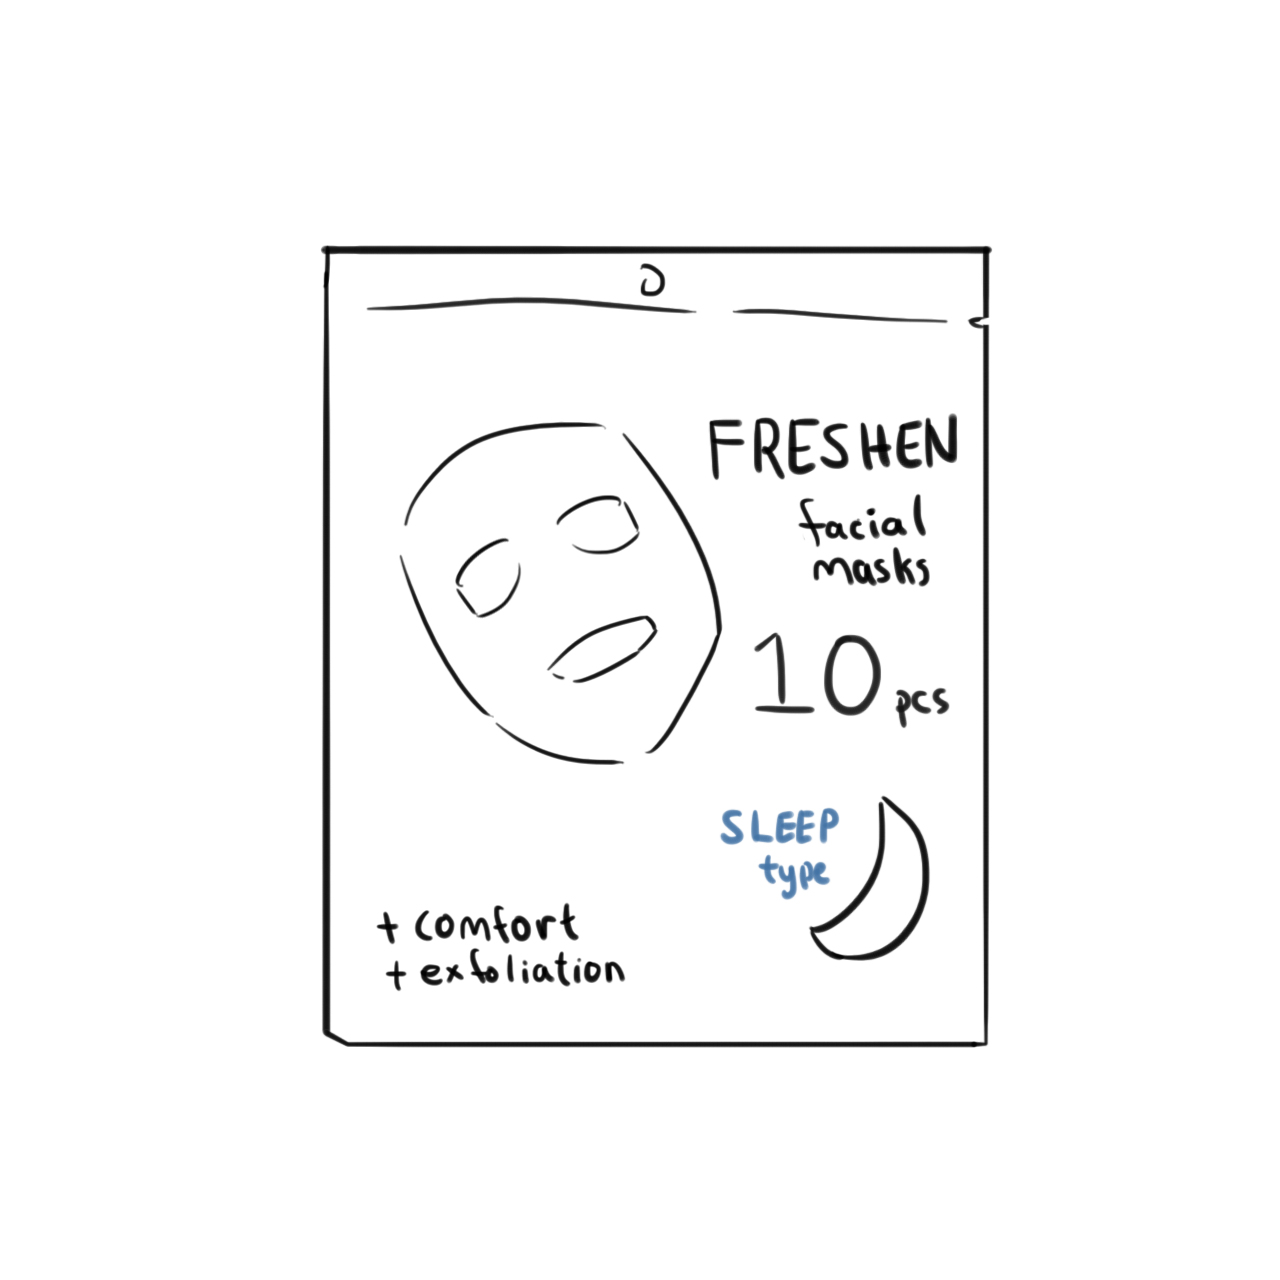 FRESHEN
facial
masks
10 pcs
SLEEP
type
+ comfort
+ exfoliation